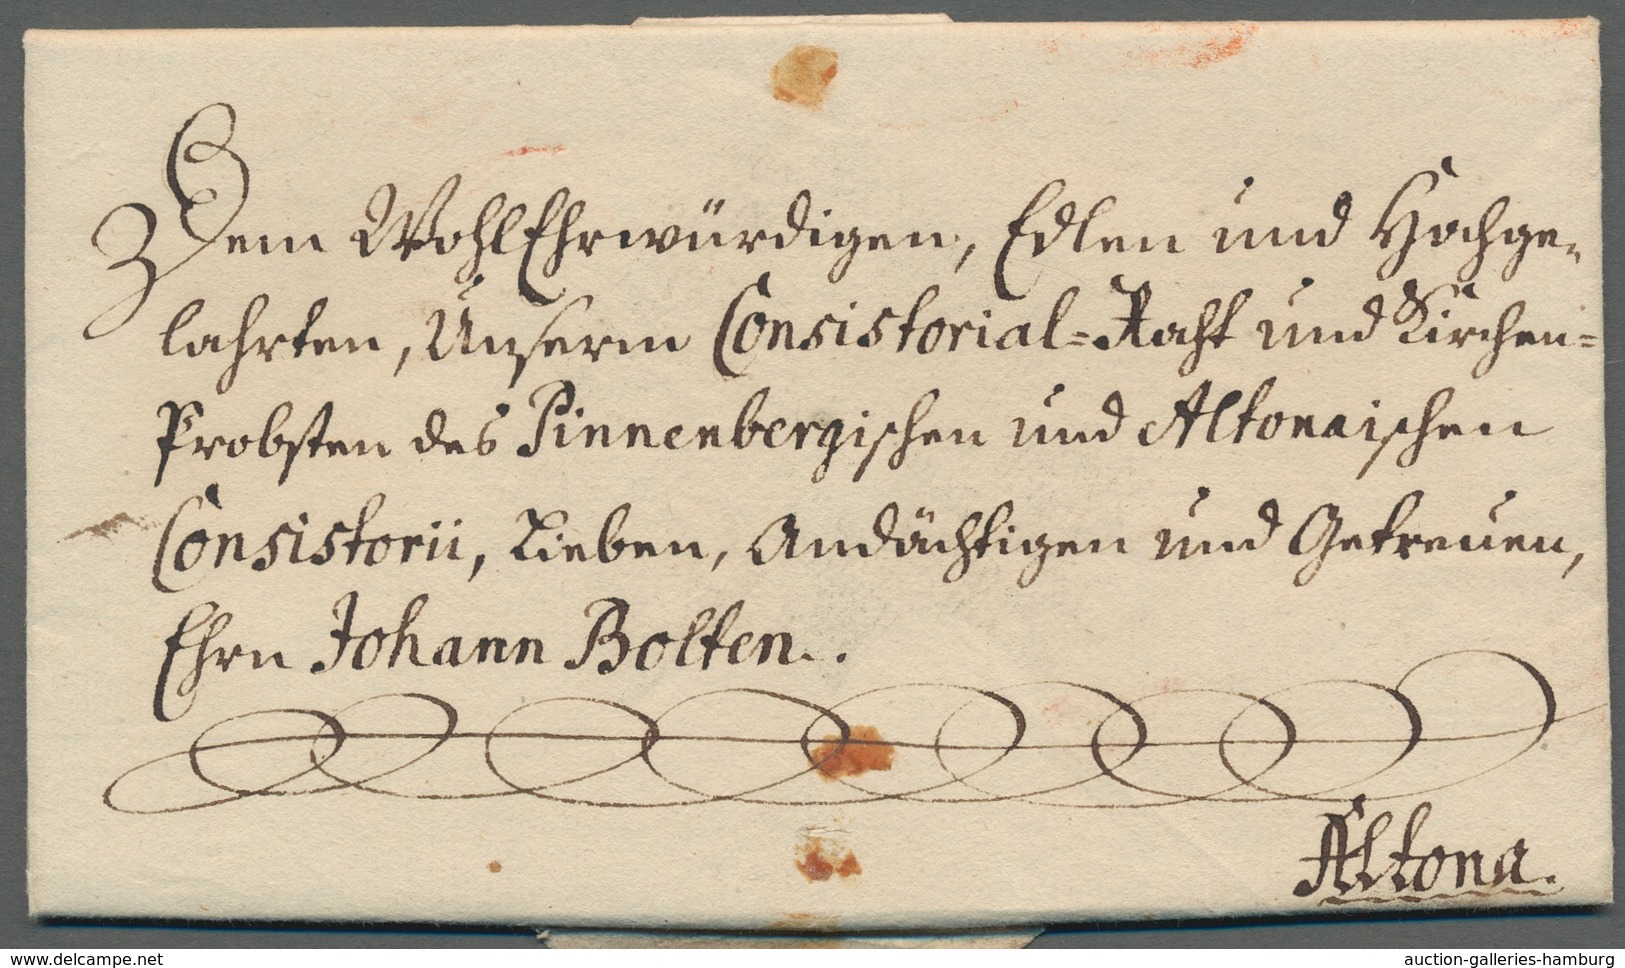 Dem WohlEhrwürdigen, Edlen und Hochge-
lahrten, Unserm Consistorial=Raht und Kirchen=
Probsten des Pinnenbergischen und Altonaischen
Consistorii, Lieben, Andächtigen und Getreuen,
Ehrn Johann Bolten..
Altona.
www.delcampe.net
auction-galleries-hamburg